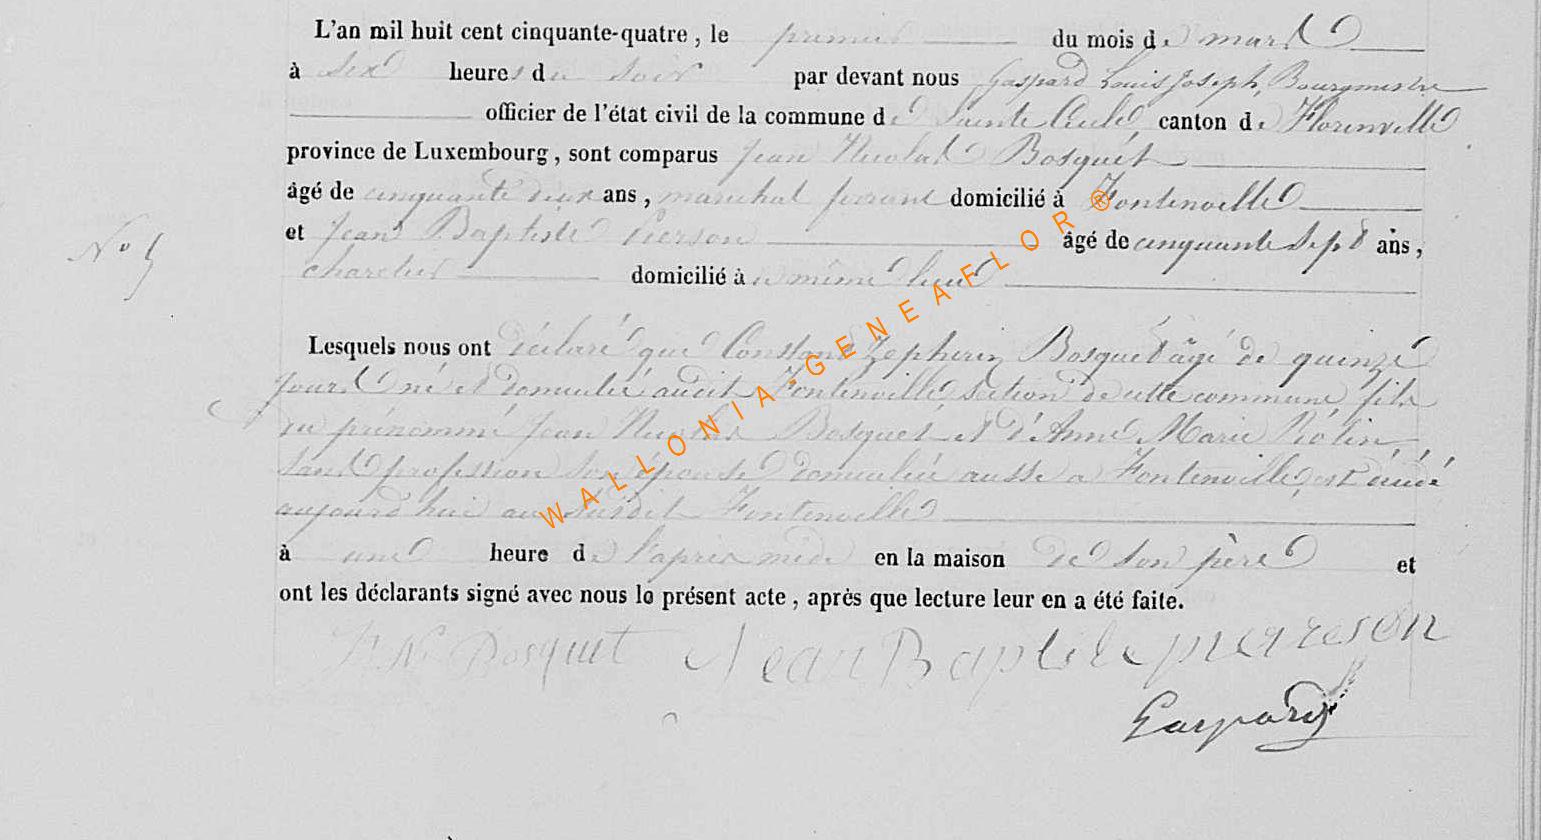 L'an mil huit cent cinquante-quatre, le premier du mois de mars
à six heures du soir par devant nous Gaspard Louis Joseph, Bourgmestre
officier de l'état civil de la commune de Sainte Cécile canton de Florenville
province de Luxembourg, sont comparus Jean Nicolas Bosquet
âgé de cinquante deux ans, marechal ferrant domicilié à Fontenoille
et Jean Baptiste Pierson âgé de cinquante sept ans,
N° 5
charetier domicilié à même lieu
Lesquels nous ont déclaré que Constant Zepherin Bosquet âgé de quinze
jours né et domicilié audit Fontenoille section de cette commune fils
du prénommé Jean Nicolas Bosquet et d'Anne Marie
sans profession son épouse domiciliée aussi a Fontenoille, est décédé
aujourd'hui au susdit Fontenoille
à une heure de l'après midi en la maison de son père et
ont les déclarants signé avec nous le présent acte, après que lecture leur en a été faite.
J. N. Bosquet Jean Baptiste piereson
Gaspard
WALLONIA-GENEAFLOR®